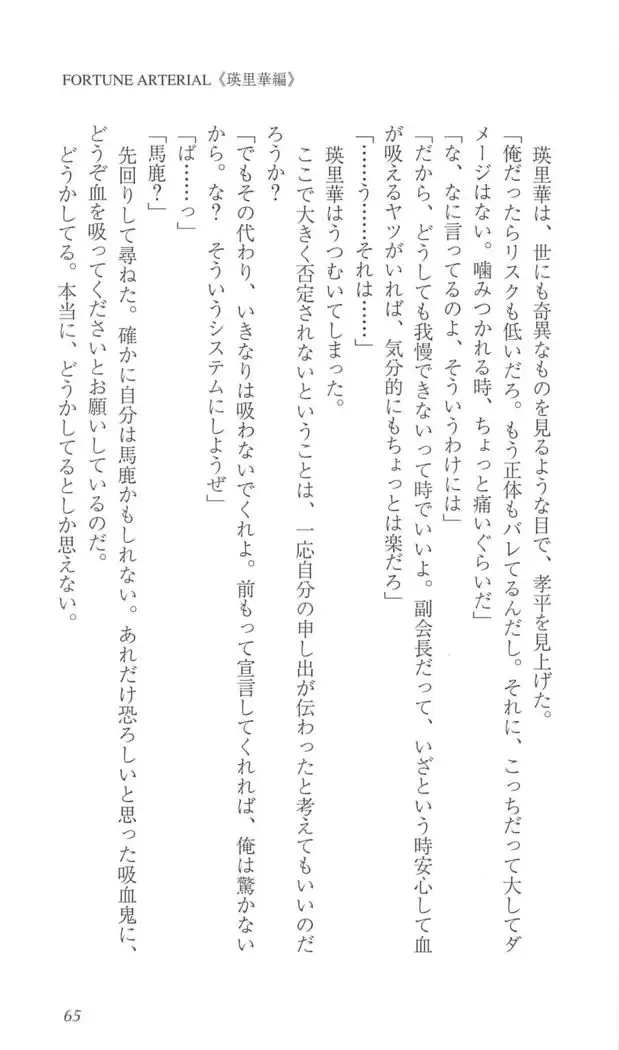 FORTUNE ARTERIAL《瑛里華編》
　瑛里華は、世にも奇異なものを見るような目で、孝平を見上げた。
「俺だったらリスクも低いだろ。もう正体もバレてるんだし。それに、こっちだって大してダ
メージはない。噛みつかれる時、ちょっと痛いぐらいだ」
「な、なに言ってるのよ、そういうわけには」
「だから、どうしても我慢できないって時でいいよ。副会長だって、いざという時安心して血
が吸えるヤツがいれば、気分的にもちょっとは楽だろ」
「……う……それは……」
　瑛里華はうつむいてしまった。
　ここで大きく否定されないということは、一応自分の申し出が伝わったと考えてもいいのだ
ろうか？
「でもその代わり、いきなりは吸わないでくれよ。前もって宣言してくれれば、俺は驚かない
から。な？　そういうシステムにしようぜ」
「ば……っ」
「馬鹿？」
　先回りして尋ねた。確かに自分は馬鹿かもしれない。あれだけ恐ろしいと思った吸血鬼に、
どうぞ血を吸ってくださいとお願いしているのだ。
　どうかしてる。本当に、どうかしてるとしか思えない。
65